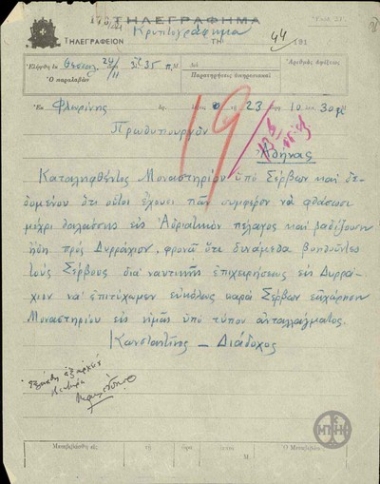 ΤΗΛΕΓΡΑΦΗΜΑ
Κρυπτογράφημα
ΤΗΛΕΓΡΑΦΕΙΟΝ
44
191
Ἐλήφθη ἐκ Θεσσαλ. 24/11
Ὁ παραλαβὼν
Παρατηρήσεις ὑπηρεσιακαί
Ἀριθμὸς ἀφίξεως
Ἐκ Φλωρίνης
23 10 30
19
Πρωθυπουργὸν
Ἀθήνας
Καταληφθέντος Μοναστηρίου ὑπὸ Σέρβων καὶ δε-
δομένου ὅτι οὗτοι ἔχουσι πᾶν συμφέρον νὰ φθάσωσι
μέχρι θαλάσσης εἰς Ἀδριατικὸν πέλαγος καὶ βαδίζουσιν
ἤδη πρὸς Δυρράχιον, φρονῶ ὅτι δυνάμεθα βοηθοῦντες
τοὺς Σέρβους διὰ ναυτικῆς ἐπιχειρήσεως εἰς Δυρρά-
χιον νὰ ἐπιτύχωμεν εὐκόλως παρὰ Σέρβων ἐκχώρησιν
Μοναστηρίου εἰς ἡμᾶς ὑπὸ τύπον ἀνταλλάγματος.
Κωνσταντῖνος – Διάδοχος
Μετεβιβάσθη εἰς
τὴν
Μ.
Ὁ μεταβιβάσας